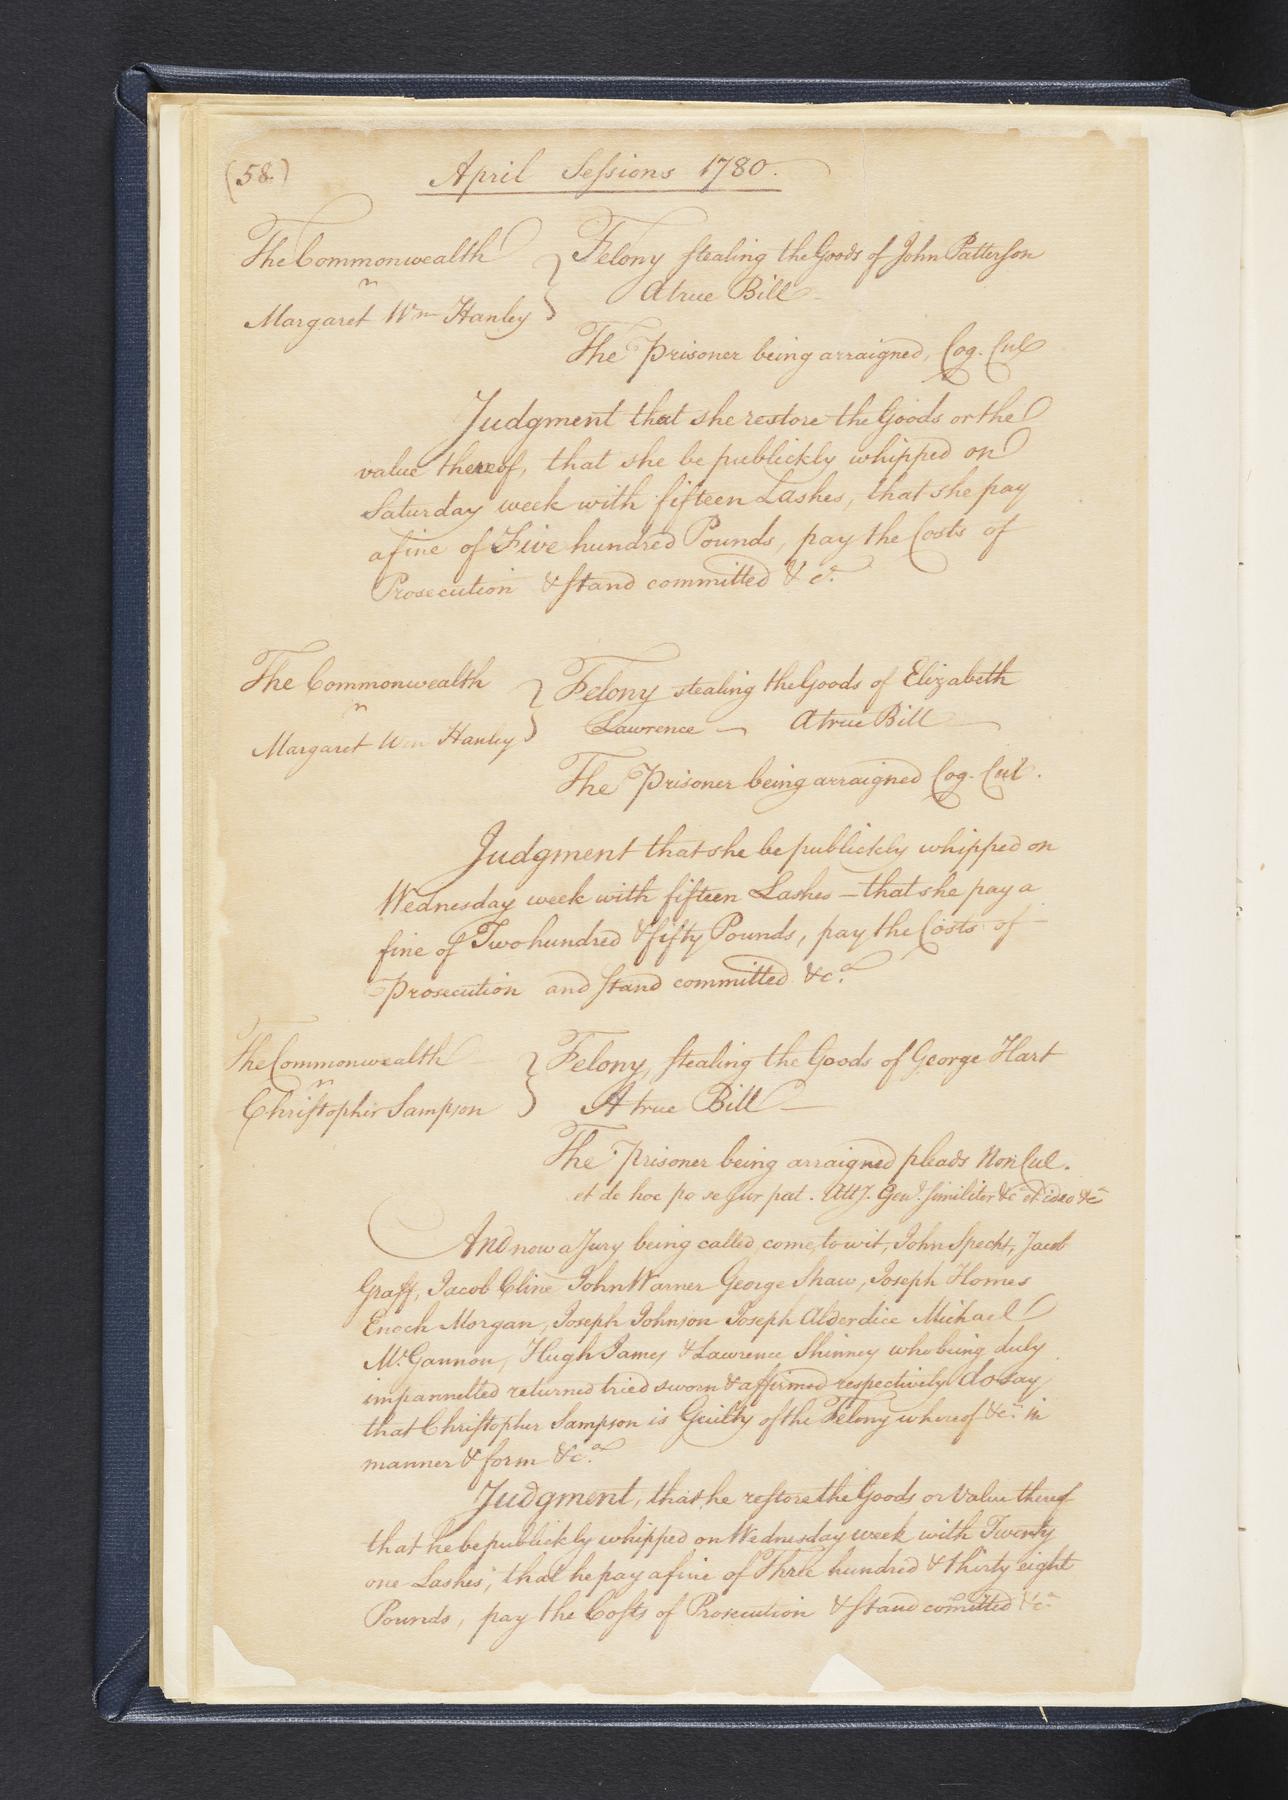 (58)
April Sessions 1780.
The Commonwealth
vs
Margaret Wm Hanley
Felony stealing the Goods of John Patterson
A true Bill
The Prisoner being arraigned, Cog. Cul
Judgment that she restore the Goods or the
value thereof, that she be publickly whipped on
Saturday week with fifteen Lashes, that she pay
a fine of Five hundred Pounds, pay the Costs of
Prosecution & stand committed &ca.
The Commonwealth
vs
Margaret Wm Hanley
Felony stealing the Goods of Elizabeth
Lawrence — A true Bill
The Prisoner being arraigned Cog. Cul.
Judgment that she be publickly whipped on
Wednesday week with fifteen Lashes — that she pay a
fine of Two hundred & fifty Pounds, pay the Costs of
Prosecution and stand committed &ca.
The Commonwealth
vs
Christopher Sampson
Felony, stealing the Goods of George Hart
A true Bill
The Prisoner being arraigned pleads Non Cul.
et de hoc po se sur pat. Atty. Genl. similiter &c et ideo &c
And now a Jury being called come, to wit, John Specht, Jacob
Graff, Jacob Cline John Warner George Shaw, Joseph Homes
Enoch Morgan, Joseph Johnson Joseph Alderdice Michael
McGannon, Hugh James & Lawrence Shinney who being duly
impannelled returned tried sworn & affirmed respectively do say
that Christopher Sampson is Guilty of the Felony whereof &ca. in
manner & form &ca.
Judgment, that he restore the Goods or Value thereof
that he be publickly whipped on Wednesday week with Twenty
one Lashes, that he pay a fine of Three hundred & thirty eight
Pounds, pay the Costs of Prosecution & stand comitted &ca